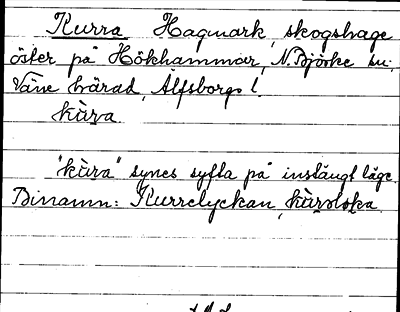 Kurra Hagmark, skogshage
öster på Hökhammar, N. Björke sn.
Väne härad, Älfsborgs l.
kùra
"kùra" synes syfta på instängt läge.
Binamn: Kurrelyckan,